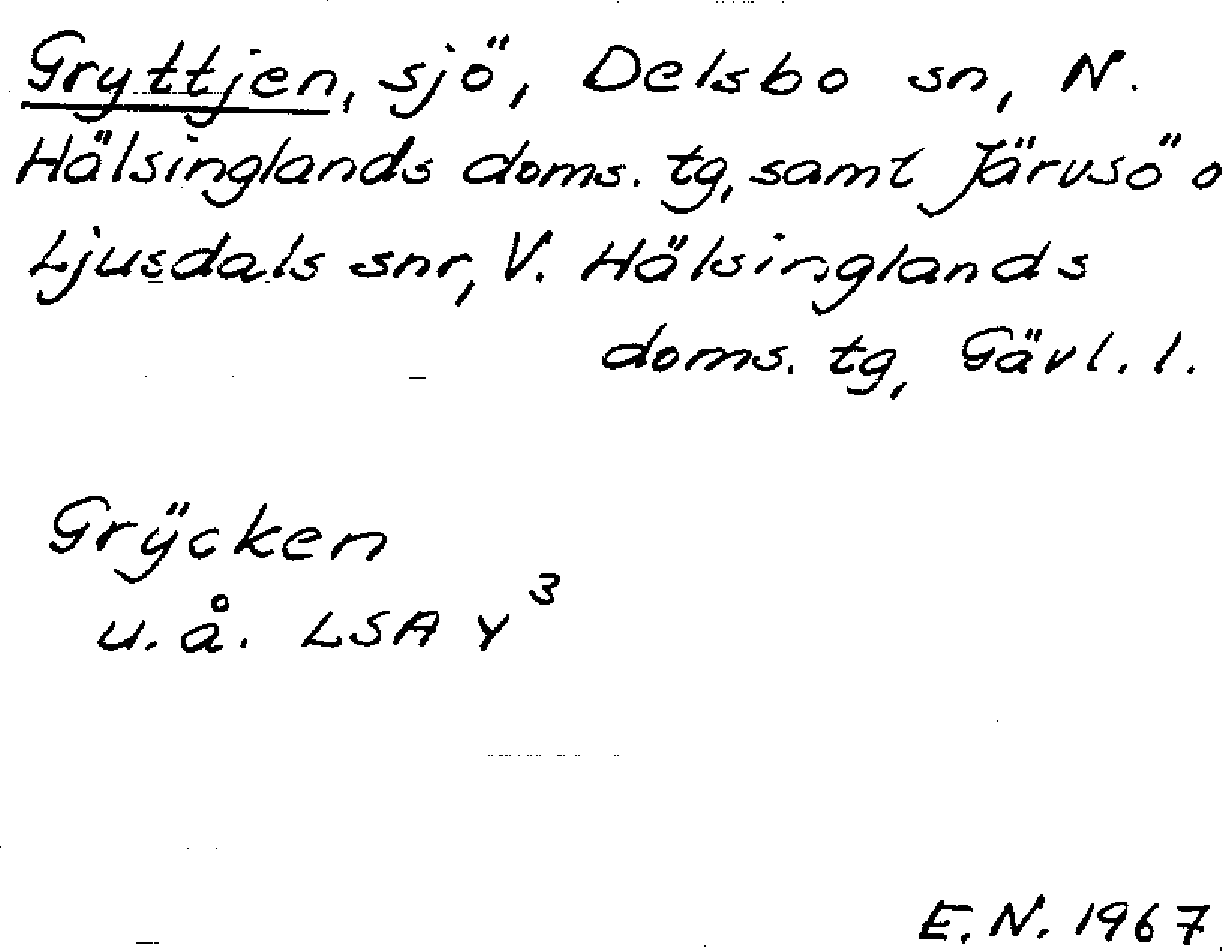 Gryttjen, sjö, Delsbo sn, N.
Hälsinglands doms. tg, samt Järvsö o
Ljusdals snr, V. Hälsinglands
doms. tg, Gävl. l.
Grÿcken
u. å. LSA Y³
E. N. 1967